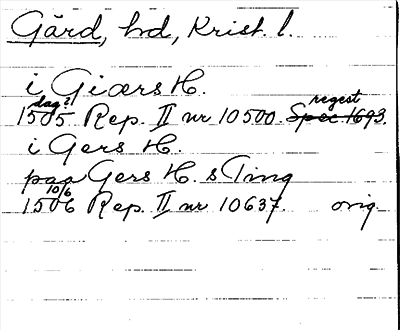 Gärd, hd, Krist. l.
i Giærs H.
dag?
1505 Rep. II nr 10500. Spec 1693. regest
i Gers H.
paa Gers H. s Ting
10/6
1506 Rep. II nr 10637. orig.